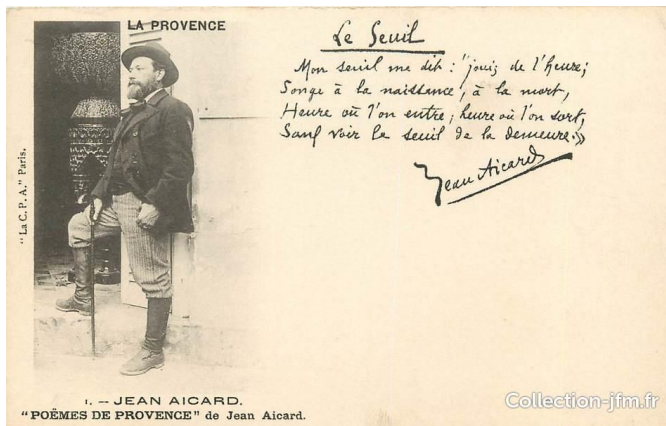 LA PROVENCE
Le Seuil
Mon seuil me dit : "jouis de l'heure;
Songe à la naissance, à la mort,
Heure où l'on entre; heure où l'on sort,
Sans voir le seuil de la demeure.»
Jean Aicard
"La C. P. A." Paris.
1. — JEAN AICARD.
"POËMES DE PROVENCE" de Jean Aicard.
© Collection-jfm.fr